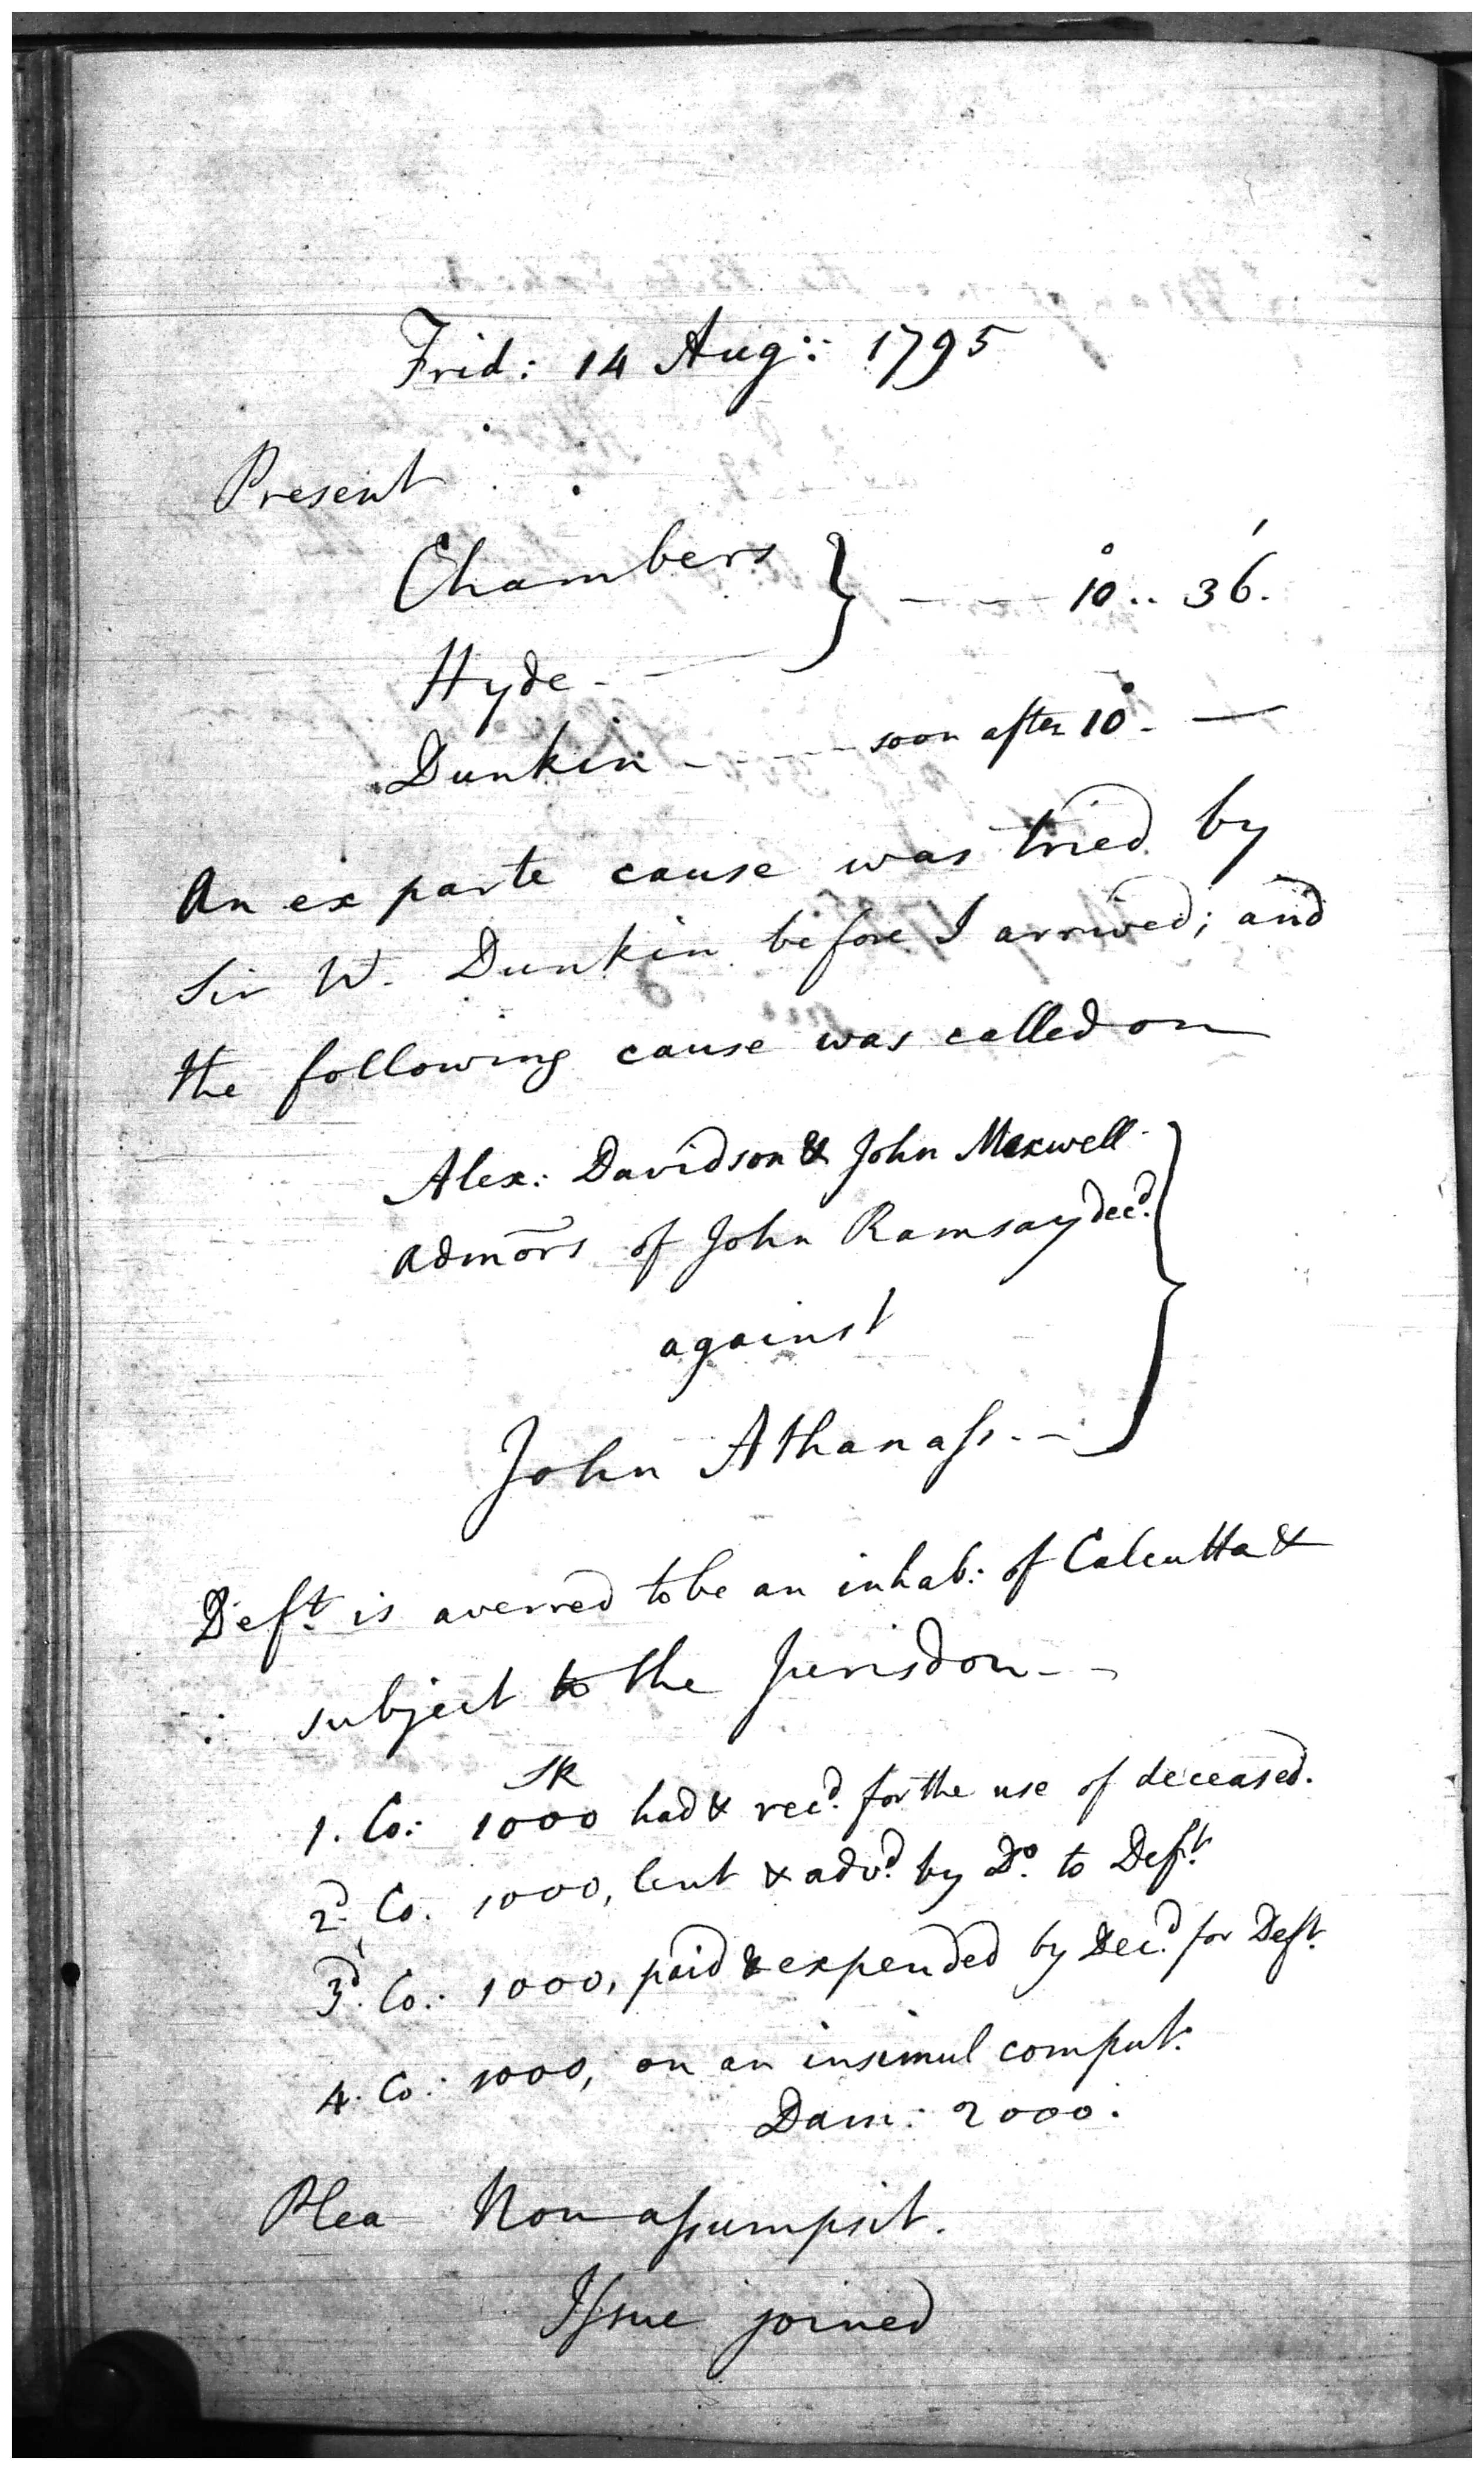 Frid: 14 Aug:: 1795
Present
Chambers } — — 10° .. 36'.
Hyde - —
Dunkin - - - - soon after 10° - —
An ex parte cause was tried by
Sir W. Dunkin before I arrived; and
the following cause was called on
Alex: Davidson & John Maxwell
admōrs of John Ramsay decd.
against
John Athanaſs. - -
Deft. is averred to be an inhab: of Calcutta &
subject to the Jurisdon - -
SR
1. Co: 1000 had & recd. for the use of deceased.
2d. Co. 1000, lent & advd. by Do. to Deft.
3d. Co: 1000, paid & expended by Decd. for Deft.
4. Co: 1000, on an insimul comput:
Dam: 2000.
Plea Non aſsumpsit.
Iſsue joined